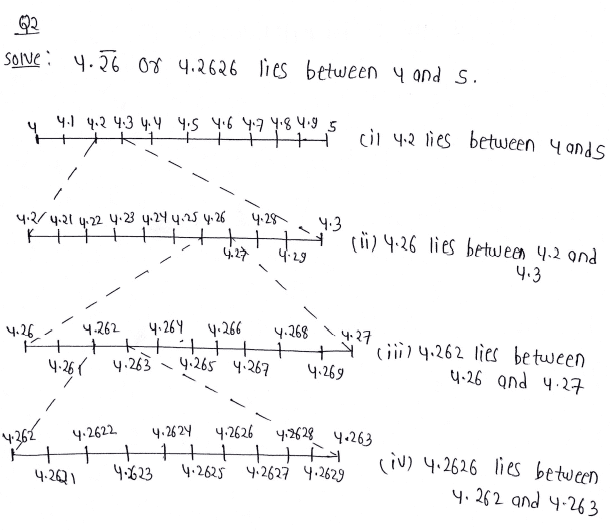 Q2
Solve: 4.2̅6̅ or 4.2626 lies between 4 and 5.
4 4.1 4.2 4.3 4.4 4.5 4.6 4.7 4.8 4.9 5
(i) 4.2 lies between 4 and 5
4.2 4.21 4.22 4.23 4.24 4.25 4.26 4.28 4.3
4.27 4.29
(ii) 4.26 lies between 4.2 and
4.3
4.26 4.262 4.264 4.266 4.268 4.27
4.261 4.263 4.265 4.267 4.269
(iii) 4.262 lies between
4.26 and 4.27
4.262 4.2622 4.2624 4.2626 4.2628 4.263
4.2621 4.2623 4.2625 4.2627 4.2629
(iv) 4.2626 lies between
4.262 and 4.263